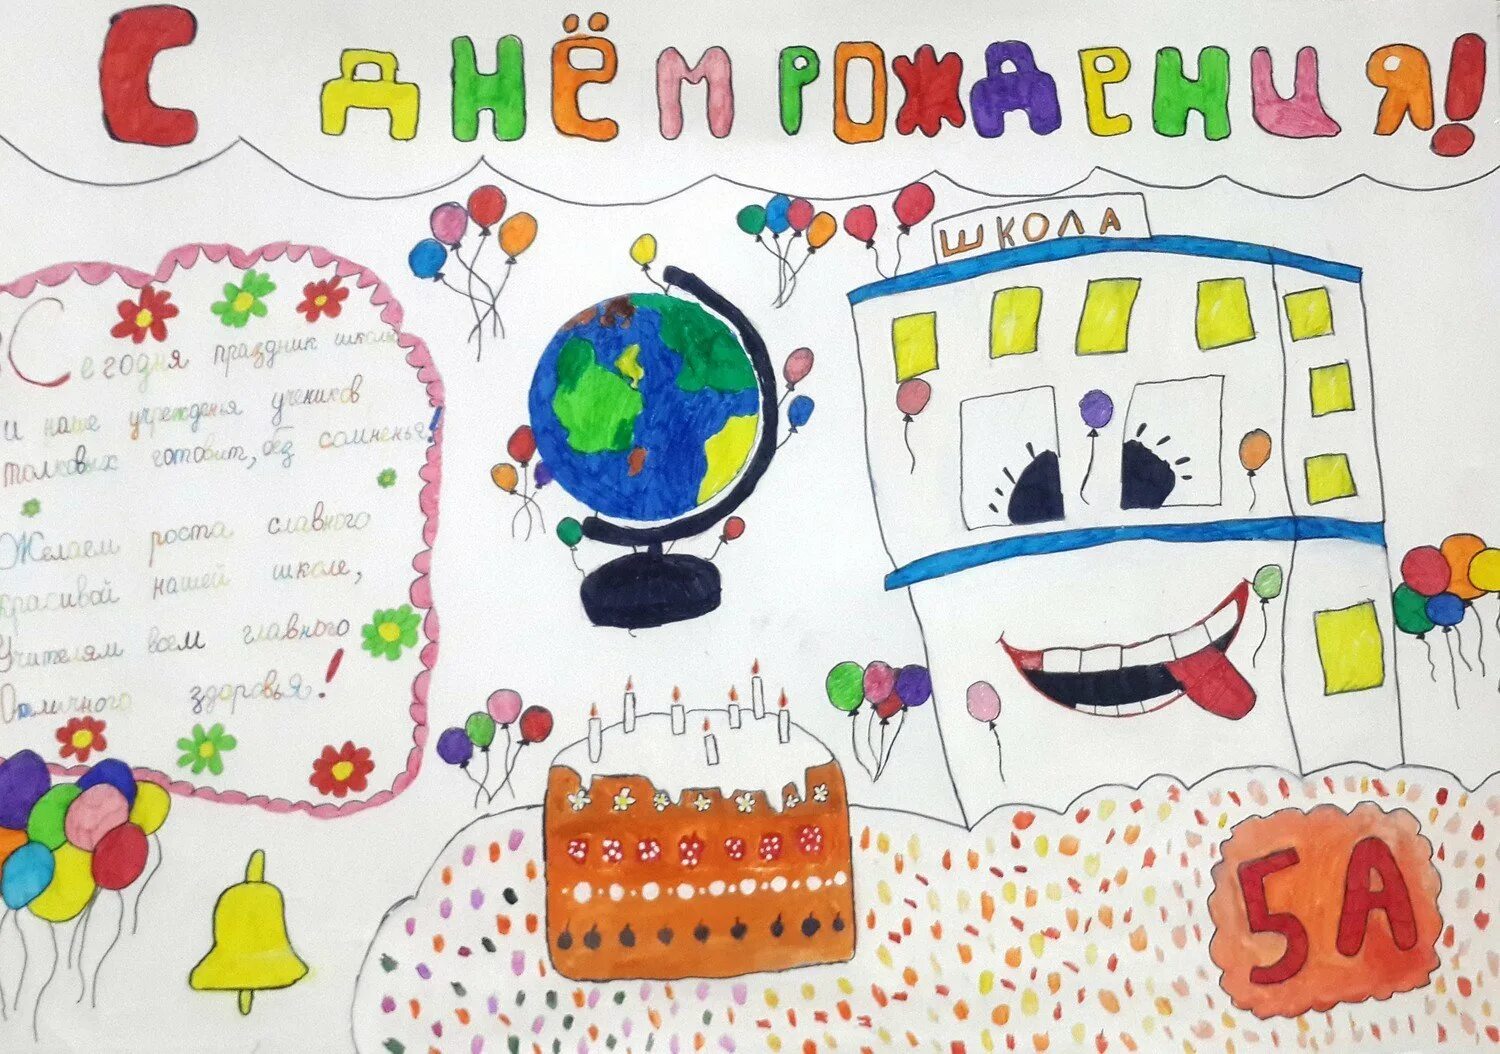 С ДНЁМ РОЖДЕНИЯ!
ШКОЛА
Сегодня праздник школы
и наше учрежденья учеников
толковых готовит, без сомненья!
Желаем роста славного
красивой нашей школе,
Учителям всем главного
Отличного здоровья!
5А